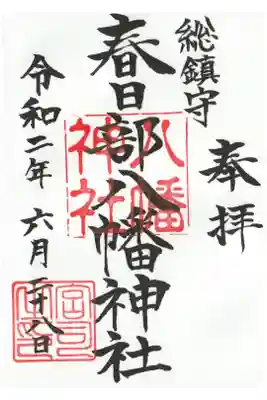 奉拝
総鎮守
春日部八幡神社
八幡
神社
令和二年 六月二十八日